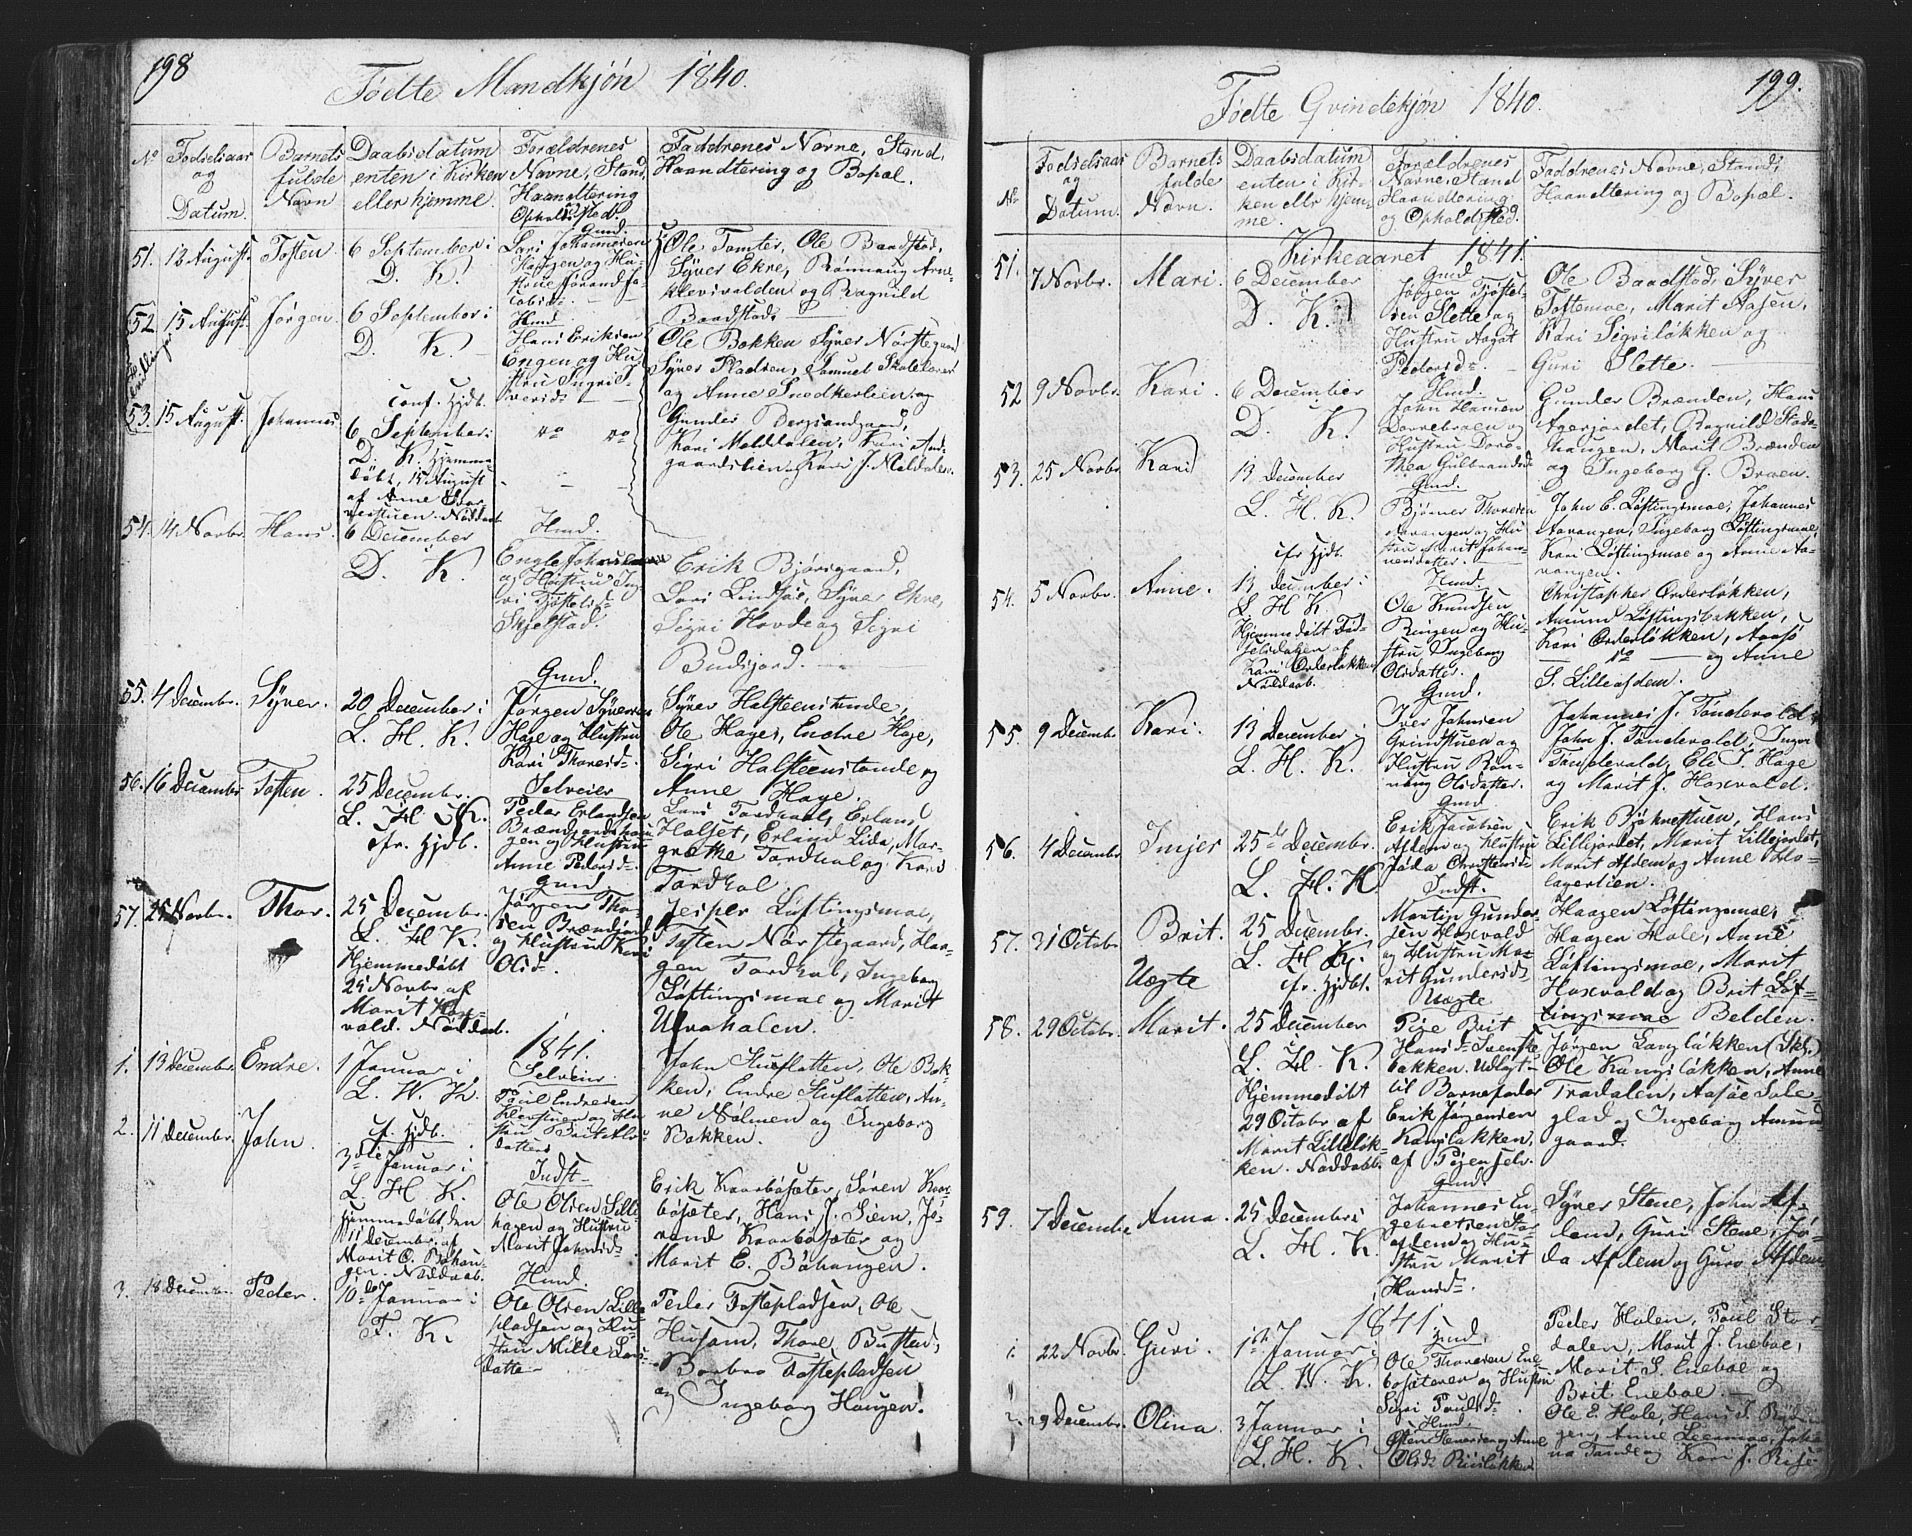 198
Fødte Mandkjøn 1840.
No
Fødselsaar og Datum.
Barnets fulde Navn
Daabsdatum enten i Kirken eller hjemme.
Forældrenes Navne, Stand, Haandtering Opholdssted
Faddrenes Navne, Stand, Haandtering og Bopæl.
51. 12 August Tosten 6 September i
D. K.
Gmd.
Lars Johannesen
Haugen og Hu-
strue Jørand Ja-
cobsd.
Ole Tomter, Ole Baadstad,
Syver Ekre, Rønnaug Arne-
klevsvalden og Ragnild
Baadstad.
52. 15 August Jørgen. 6 September i
D. K.
conf. Hjdb.
Hmd.
Hans Eriksen
Engen og Hu-
stru Ingri S-
versd.
Ole Bakken Syver Nørstegaard
Syver Pladsen, Samuel Skoleholder
og Anne Snedkerlien.
Tvillinger
53. 15 August Johannes
6 September i
D. K. Hjemme-
døbt, 15 August
af Anne
Nøddaab
do do
Gunder Bergsandgaard,
Kari Meldalen, Kari
Kari J. Meldalen.
54. 14 Novbr. Hans. 6 December
D. K.
Hmd.
Engle Johannesen
og Hustru Ing-
ri Tjøstelsd.
Skjelstad.
Erik Bjørsgaard,
Lars Lindsøe, Syver Ekre,
Sigri Hovde og Sigri
Budsjord.
55. 4 Decembr. Syver. 20 December i
L. H. K.
Gmd.
Jørgen Syversen
Hage og Hustru
Kari Thoresd.
Syver Halsteenstande,
Ole Hage, Endre Hage,
Sigri Halsteenstande og
Anne Hage.
56. 16 Decembr Tosten. 25 Decembr.
L. H. K.
cfr. Hjdb.
Selveier
Peder Erlandsen
Brændjordshau-
gen og Hustru
Anne Pedersd.
Lars Tordhol, Erland
Halset, Erland Lida, Mar-
grethe Tordhol og Kari
Tordhol.
57. 25 Novbr. Thor. 25 Decembr.
L. H. K.
Hjemmedøbt
25 Novbr. af
Marit Hos-
vald. Nøddaab.
Gmd
Jørgen Tho-
sen Brændjord
og Hustru Kari
Olsd.
Jesper Løftingsmoe,
Tosten Nørstegaard, Haa-
gen Tordhol, Ingeborg
Løftingsmoe og Marit
Ulvahalen.
1841.
1. 13 Decembr. Endre. 1 Januar i
L. W. K.
cf. Hjdb.
Selveier
Poul Endresen
og Hu-
stru
datter
John Stuflotten, Ole Bak-
ken, Endre Stuflotten, An-
ne Nølmen og Ingeborg
Bakken.
2. 11 Decembr. John.
3die Januar i
L. H. K.
Hjemmedøbt den
11 Decembr. af
Marit E. Bøhau-
gen. Nøddaab.
Indst
Ole Olsen Lille-
hagen og Hustru
Marit Johnsd.
Erik Kvarbøsæter, Søren Kvar-
bøsæter, Hans J. Siem, Jø-
rand Kvarbøsæter og
Marit E. Bøhaugen.
3. 18 Decembr Peder. 10de Januar i
F. K.
Hmd.
Ole Olsen Lille-
pladsen og Hu-
stru Mille Lars-
datte
Peder Toftepladsen, Ole
Husom, Thore Busten,
Barbro Toftepladsen
og Ingeborg Haugen.
199.
Fødte Qvindekjøn 1840.
No
Fødselsaar og Datum.
Barnets fulde Navn.
Daabsdatum enten i Kirken eller hjemme.
Forældrenes Navne, Stand Haandtering og Opholdssted.
Faddrenes Navne, Stand, Haandtering og Bopæl.
Kirkeaaret 1841.
51. 7 Novbr. Mari. 6 December
D. K.
Gmd
Jørgen Tjøstel-
sen Slette og
Hustru Aagot
Pedersd.
Ole Baadstad, Syver
Toftemoe, Marit Aasen,
Kari Sigriløkken og
Guri Slette.
52 9 Novbr. Kari. 6 December
D. K.
Hmd.
John Hansen
Dorrebraen og
Hustru Doro-
thea Gulbrandsd
Gunder Brænden, Hans
Agerjordet, Ragnild Stade-
haugen, Marit Brænden
og Ingeborg G. Braen.
53. 25 Novbr. Kari 13 December
L. H. K.
cfr Hjdb.
Gmd.
Bjørner Thoresen
Aavangen og Hu-
stru Marit Johan-
nesdatter.
John E. Løftingsmoe, Johannes
Aavangen, Ingeborg Løftingsmoe,
Kari Løftingsmoe og Anne Aa-
vangen.
54. 5 Novbr. Anne. 13 December i
L. H. K.
Hjemmedøbt Fød-
selsdagen af
Kari Orderløkken
Nøddaab.
Hmd.
Ole Knudsen
Ringen og Hu-
stru Ingeborg
Olsdatter.
Christopher Orderløkken,
Amund Løftingsbakken,
Kari Orderløkken, Aasø
do og Anne
S. Lilleafdem.
55. 9 Decembr Kari. 13 December i
L. H. K.
Gmd.
Iver Johnsen
Grindstuen og
Hustru Røn-
naug Olsdatter.
Johannes J. Tøndevold
John J. Tøndevold, Inger
Tøndevold, Eli I. Hage
og Marit J. Hosvold.
56. 4 Decembr Inger 25de Decembr.
L. H. K
Gmd
Erik Jacobsen
Afdem og Hustru
Jøda Christensd
Erik Bjøknestuen, Hans
Lillejordet, Marit Lillejordet,
Marit Afdem og Anne Blo-
lagerlien.
57. 31 Octobr. Brit. Uægte
25 Decembr.
L. H. K.
cfr. Hjdbt.
Indst.
Martin Gunder-
sen Hosvold
og Hustru Ma-
rit Gundersd
Haagen Løftingsmoe,
Haagen Hole, Anne
Løftingsmoe, Marit
Hosvold og Brit Løf-
tingsmoe Belden.
58. 29 Octobr. Marit. 25 December
L. H. K.
Hjemmedøbt
29 Octobr af
Marit Lilleløk-
ken. Nøddaab.
Uægte
Pige Brit
Hansd. Svenske-
bakken. Udlagt
til Barnefader
Erik Jørgensen
Kongsløkken,
af Pigen selv.
Jørgen Lavgløkken (Skl.)
Ole Kongsløkken, Anne
Trødalen, Aasøe Sole-
glad og Ingeborg Amun-
gaard.
59. 7 Decembr Anna. 25 December i
L. H. K.
Gmd
Johannes En-
gebretsen Stor-
afdem og Hu-
stru Marit
Hansd.
Syver Stene, John Af-
dem, Guri Stene, Jø-
da Afdem og Guro Afdem
1841
1. 22 Novbr. Guri. 1ste Januar i
L. W. K.
Gmd.
Ole Thoresen Ene-
bosæteren og Hustru
Sigri Poulsd.
Peder Holen, Poul Stor-
dalen, Marit J. Eneboe,
Marit S. Eneboe og
Brit Eneboe.
2. 29 Decembr. Olina. 3 Januar i
L. H. K.
Hmd.
Østen Stenersen og Anne
Olsd.
Ole E. Hole, Hans T. Røden-
gen, Anne Leermoe, Joha-
na Tande og Kari J. Rise